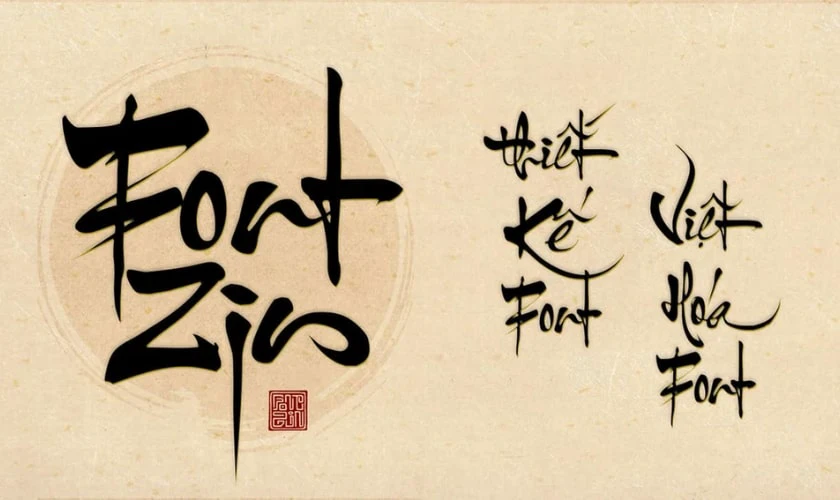 Font
Zin
FONT
ZIN
thiết
Kế
Font
Việt
Hóa
Font